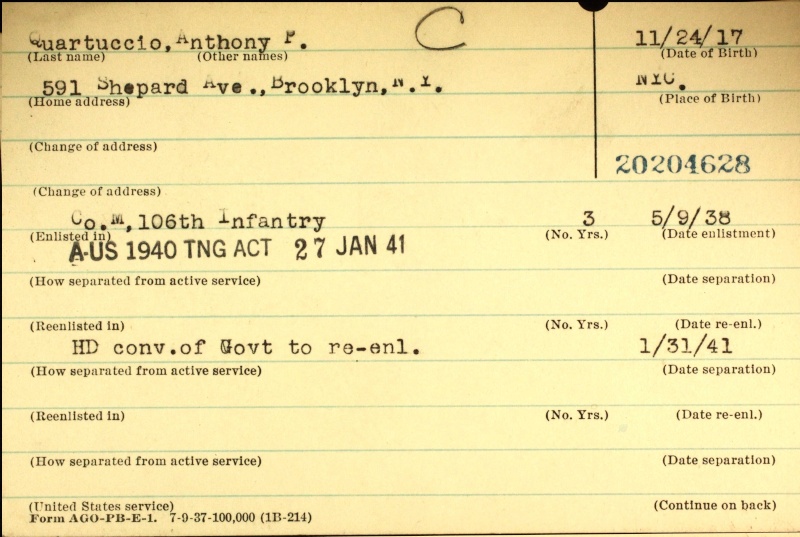 C
Quartuccio, Anthony P. 11/24/17
(Last name) (Other names) (Date of Birth)
591 Shepard Ave., Brooklyn, N.Y. NYC.
(Home address) (Place of Birth)
(Change of address)
20204628
(Change of address)
Co.M, 106th Infantry 3 5/9/38
(Enlisted in) (No. Yrs.) (Date enlistment)
A-US 1940 TNG ACT 27 JAN 41
(How separated from active service) (Date separation)
(Reenlisted in) (No. Yrs.) (Date re-enl.)
HD conv.of Govt to re-enl. 1/31/41
(How separated from active service) (Date separation)
(Reenlisted in) (No. Yrs.) (Date re-enl.)
(How separated from active service) (Date separation)
(United States service) (Continue on back)
Form AGO-PB-E-1. 7-9-37-100,000 (1B-214)